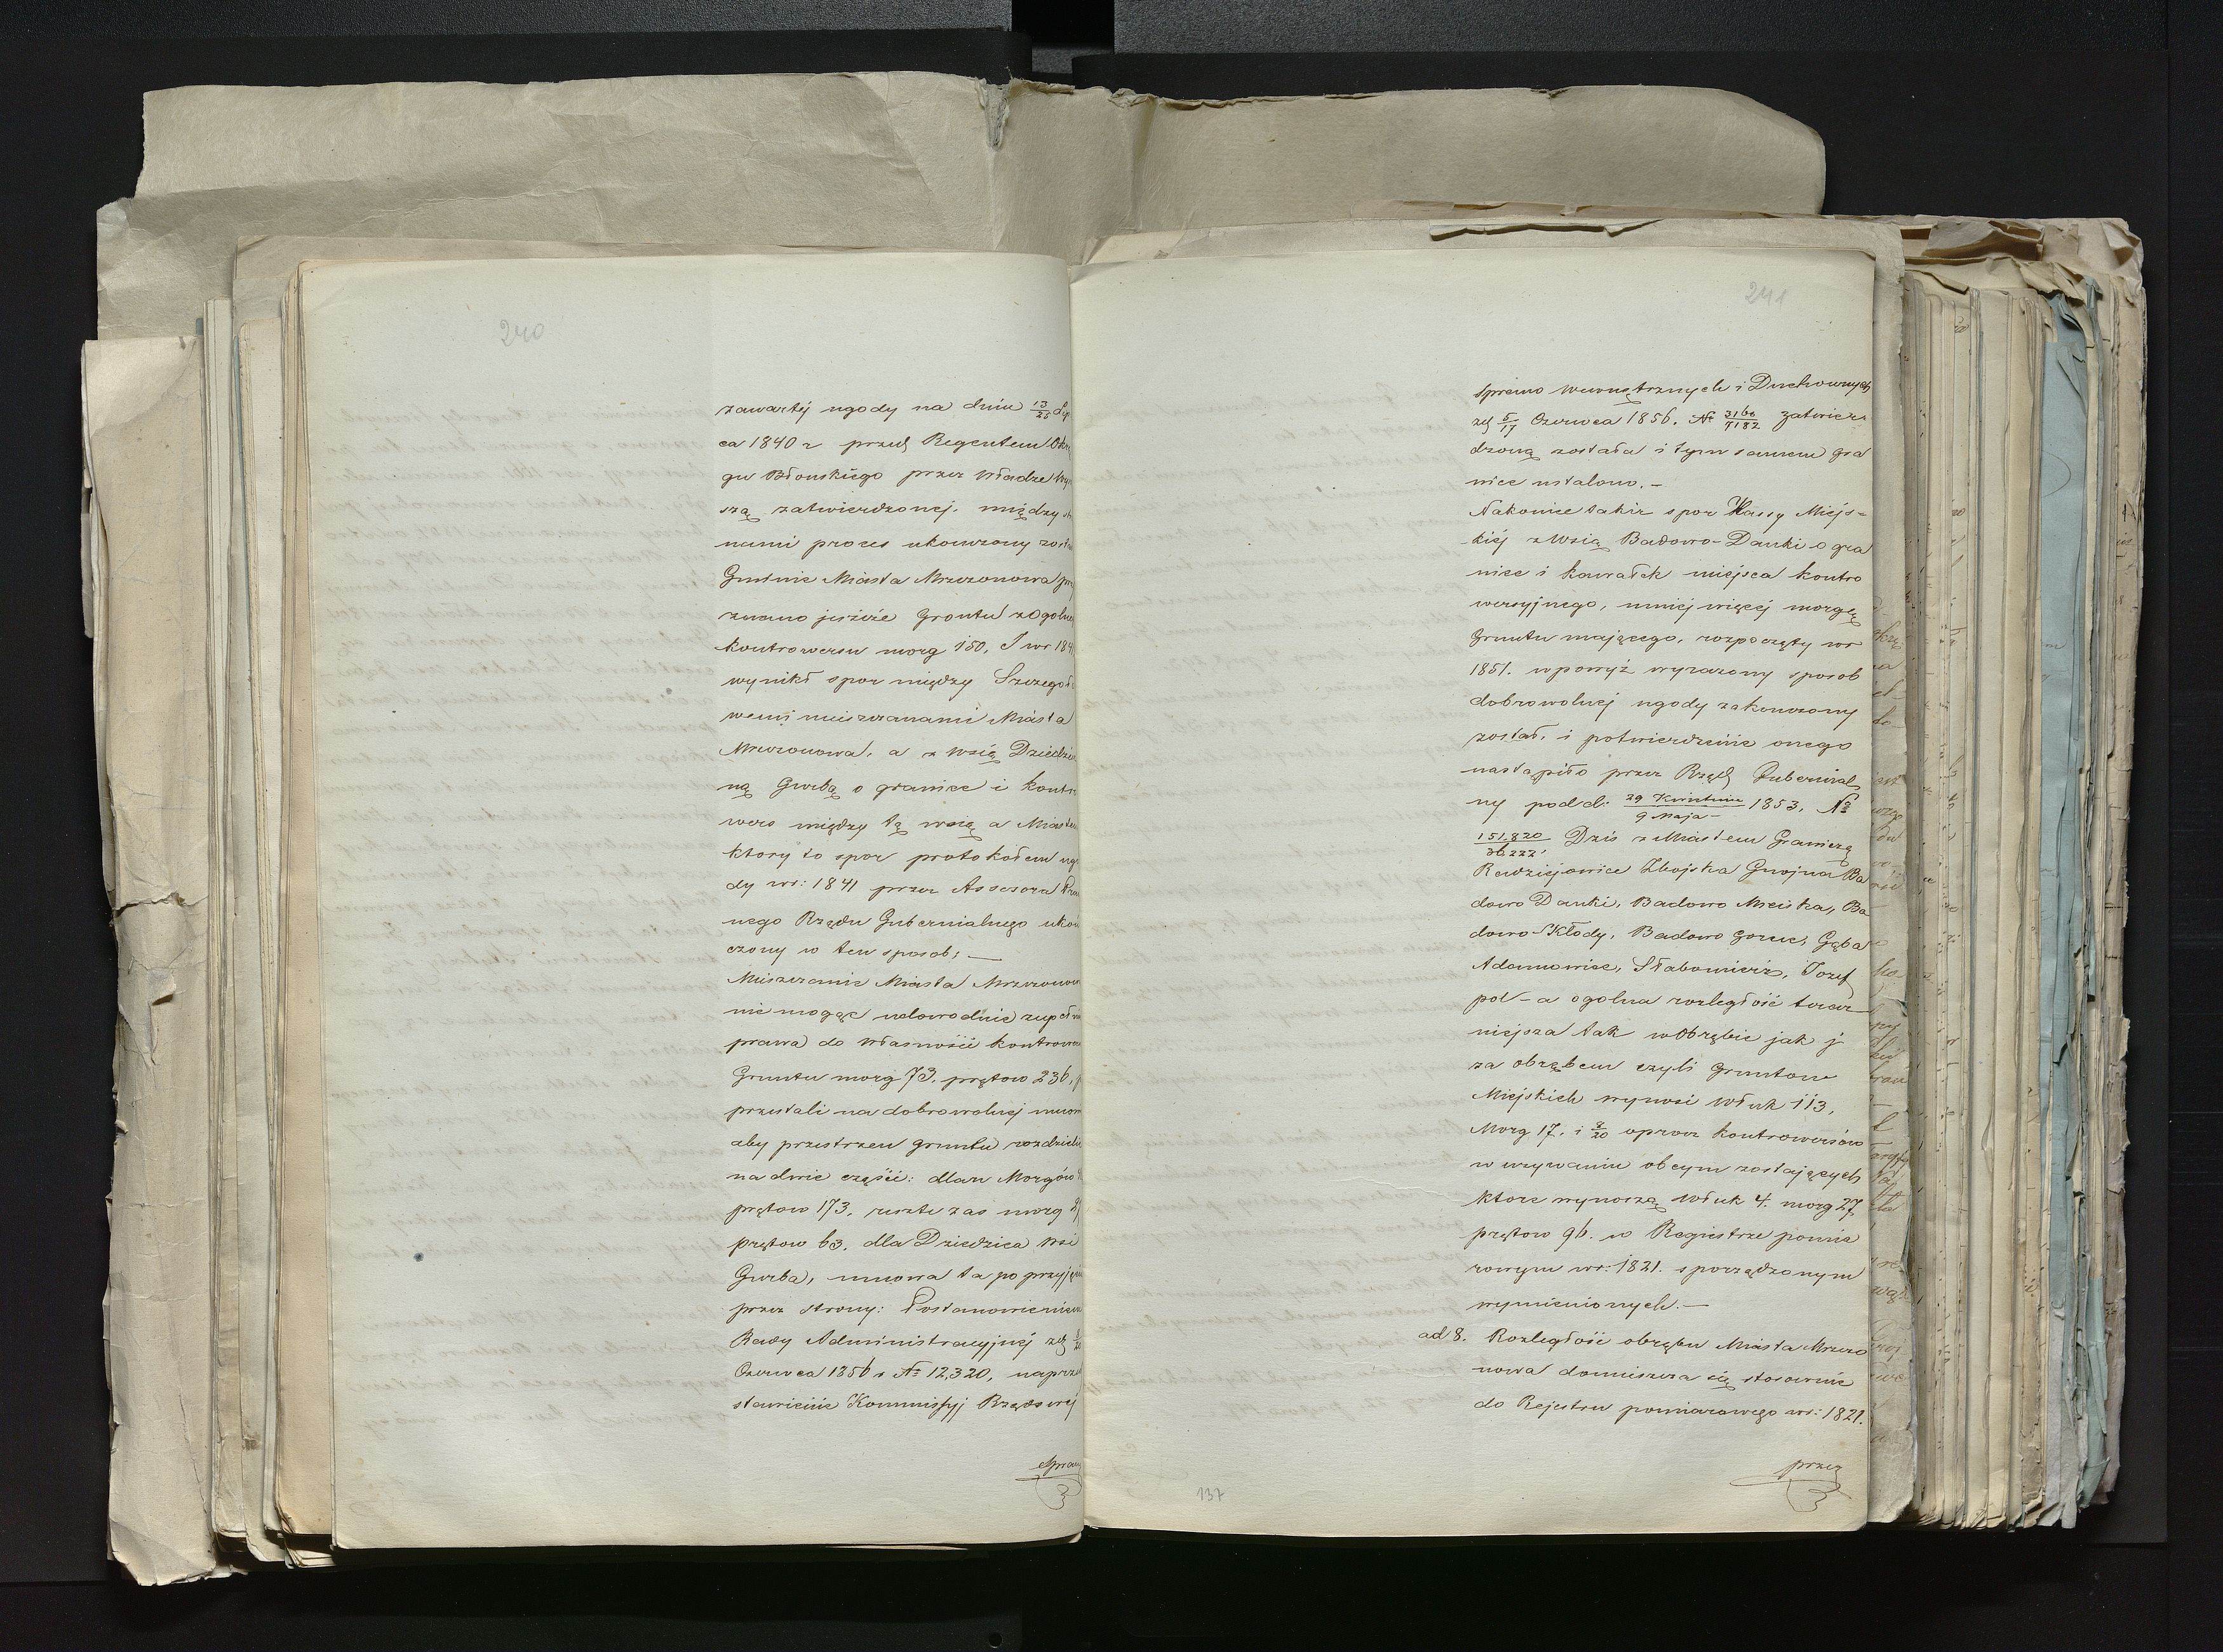 240
zawartéj ugody na dniu 13/25 Lip
ca 1840 r przed Regentem Okrę
gu Błonskiego przez Władzę Wyż
szą zatwierdzonej, między stro
nami proces ukończony zosta
Gminie Miasta Mszczonowa przy
znano jeszcze Grontu z Ogolnego
kontrowersu morg 150, I w r 1841
wynikł spor między Szczegoło
wemi mieszczanami Miasta
Mszczonowa, a z Wsią Dziedzicz
ną Gurbą o granice i kontro
wers między tą wsią a Miastem
ktory to spor protokołem ugo
dy w r: 1841 przez Assessora Praw
nego Rządu Gubernialnego ukoń
czony w ten sposob; —
Mieszczanie Miasta Mszczonowa
nie mogąc udowodnic zupełnie
prawa do własności kontrowersu
Gruntu morg 73. prętow 236,
przestali na dobrowolnej umowie
aby przestrzen gruntu rozdzielic
na dwie części: dla m Morgów
prętow 173, resztę zas morg
prętow 63. dla Dziedzica Wsi
Gurba, umowa ta po przyjęciu
przez strony: Postanowieniem
Rady Administracyjnéj zd
Czerwca 1856 r № 12,320, na przed
stawienie Kommissyj Rządowéj
Spraw
241
Spraw Wewnętrznych i Duchownych
zd 5/17 Czerwca 1856. № 3166/7182 zatwier
dzoną została i tym samem gra
nice ustalono. —
Nakoniec także spor Kassy Miejs=
kiéj z Wsią Badowo-Danki o gra
nice i kawałek miejsca kontro
wersyjnego, mniej więcéj morgę
Gruntu mającego, rozpoczęty w r
1851. w powyż wyrazony sposob
dobrowolnej ugody zakonczony
został, i potwierdzenie onego
nastąpiło przez Rząd Gubernial
ny pod d: 29 Kwietnia/9 Maja 1853, №
151.820/36222, Dziś z Miastem Graniczą
Radziejowice Zbojska Gnojna Ba
dowo Danki, Badowo Mściska, Ba
dowo-Kłody, Badowo gorne, Gąba
Adamowice, Słabomierz, Jozef
pol — a ogolna rozległość teraz
niejsza tak w Obrębie jak j
za obrębem czyli Gruntow
Miejskich wynosi Włuk 113,
Morg 17. i 8/20 oprocz kontrowersów
w uzywaniu obcym zostających
ktore wynoszą Włuk 4. morg 27
prętow 96. w Regestrze pomia
rowym w r: 1821. sporządzonym
wymienionych. —
ad 8. Rozległość obrębu Miasta Mszczo
nowa domieszcza się stosownie
do Rejestru pomiarowego w r: 1821.
przez
137